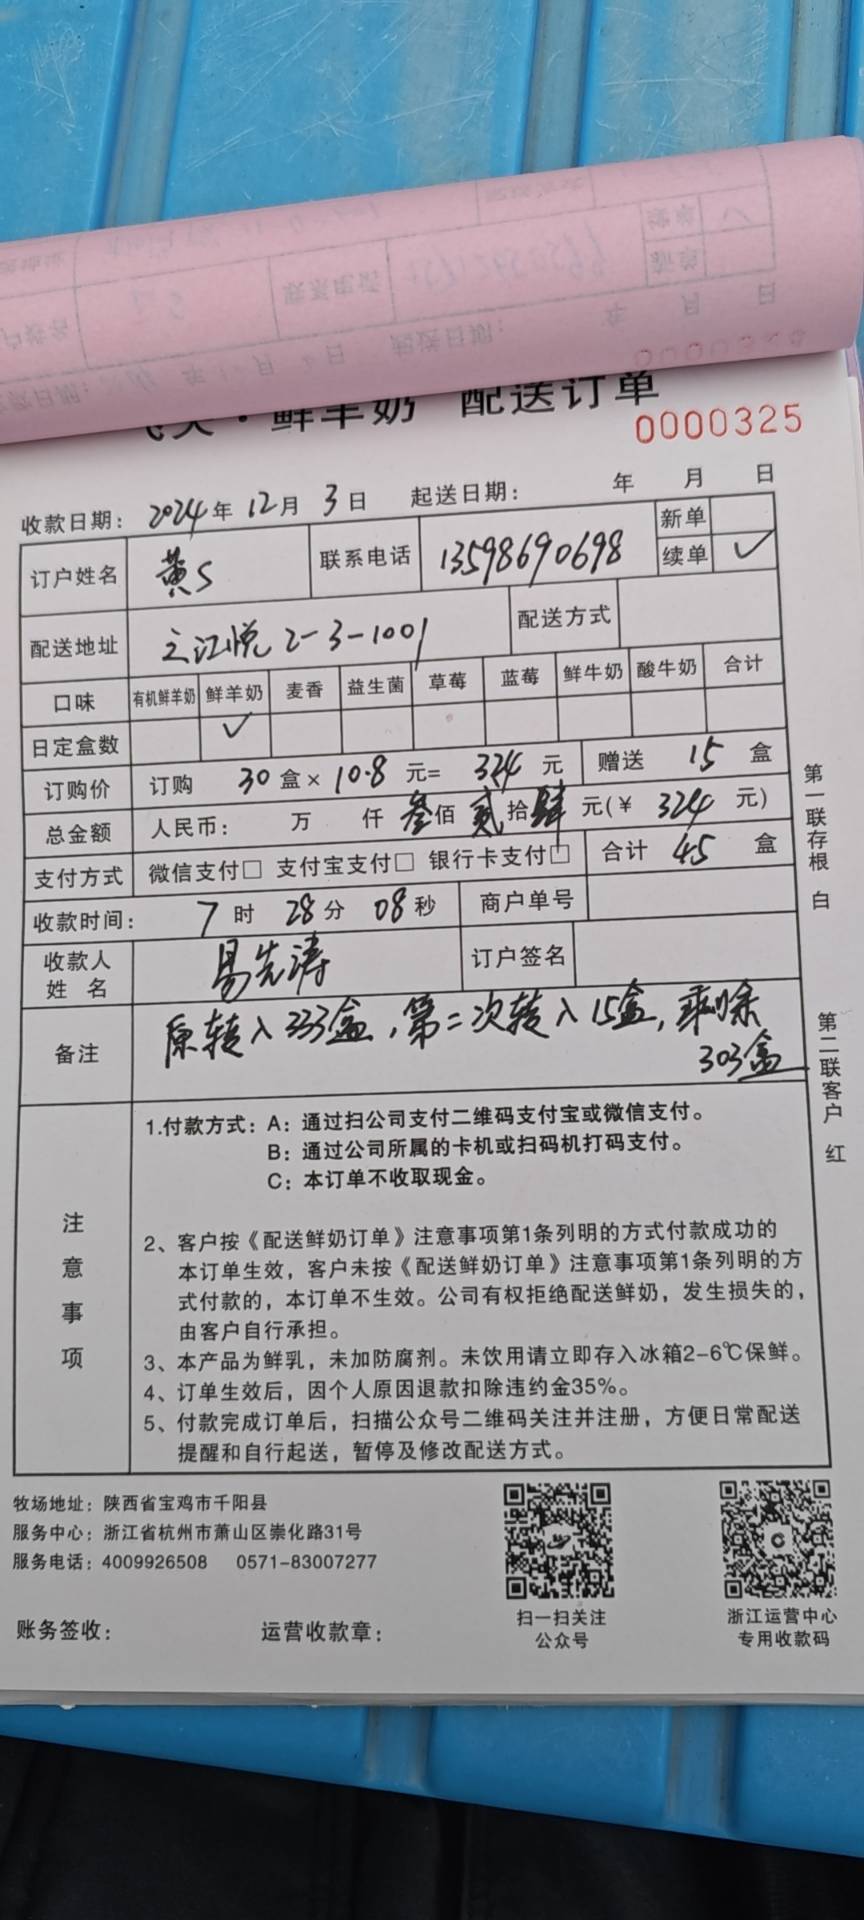 鲜羊奶 配送订单
0000325
收款日期: 2024年 12月 3日 起送日期: 年 月 日
订户姓名 黄S 联系电话 13598690698 新单
续单 ✓
配送地址 之江悦 2-3-1001 配送方式
口味 有机鲜羊奶 鲜羊奶 麦香 益生菌 草莓 蓝莓 鲜牛奶 酸牛奶 合计
日定盒数 ✓
订购价 订购 30 盒× 10.8 元= 324 元 赠送 15 盒
总金额 人民币: 万 仟 叁佰 贰拾肆 元(¥ 324 元)
支付方式 微信支付□ 支付宝支付□ 银行卡支付□ 合计 45 盒
收款时间: 7 时 28 分 08 秒 商户单号
收款人姓名 易先涛 订户签名
备注 原转入333盒,第二次转入15盒,剩余
303盒
第一联存根 白
第二联客户 红
注意事项
1.付款方式: A: 通过扫公司支付二维码支付宝或微信支付。
B: 通过公司所属的卡机或扫码机打码支付。
C: 本订单不收取现金。
2、客户按《配送鲜奶订单》注意事项第1条列明的方式付款成功的
本订单生效，客户未按《配送鲜奶订单》注意事项第1条列明的方
式付款的，本订单不生效。公司有权拒绝配送鲜奶，发生损失的，
由客户自行承担。
3、本产品为鲜乳，未加防腐剂。未饮用请立即存入冰箱2-6℃保鲜。
4、订单生效后，因个人原因退款扣除违约金35%。
5、付款完成订单后，扫描公众号二维码关注并注册，方便日常配送
提醒和自行起送，暂停及修改配送方式。
牧场地址: 陕西省宝鸡市千阳县
服务中心: 浙江省杭州市萧山区崇化路31号
服务电话: 4009926508 0571-83007277
扫一扫关注
公众号
浙江运营中心
专用收款码
账务签收: 运营收款章: